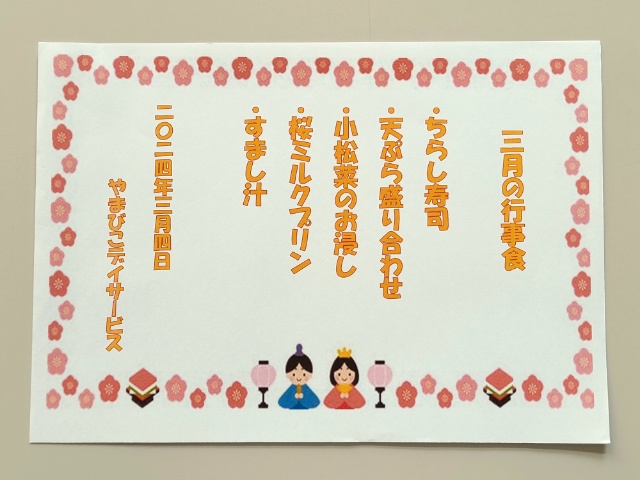 三月の行事食
・ちらし寿司
・天ぷら盛り合わせ
・小松菜のお浸し
・桜ミルクプリン
・すまし汁
二〇二四年三月四日
やまびこデイサービス